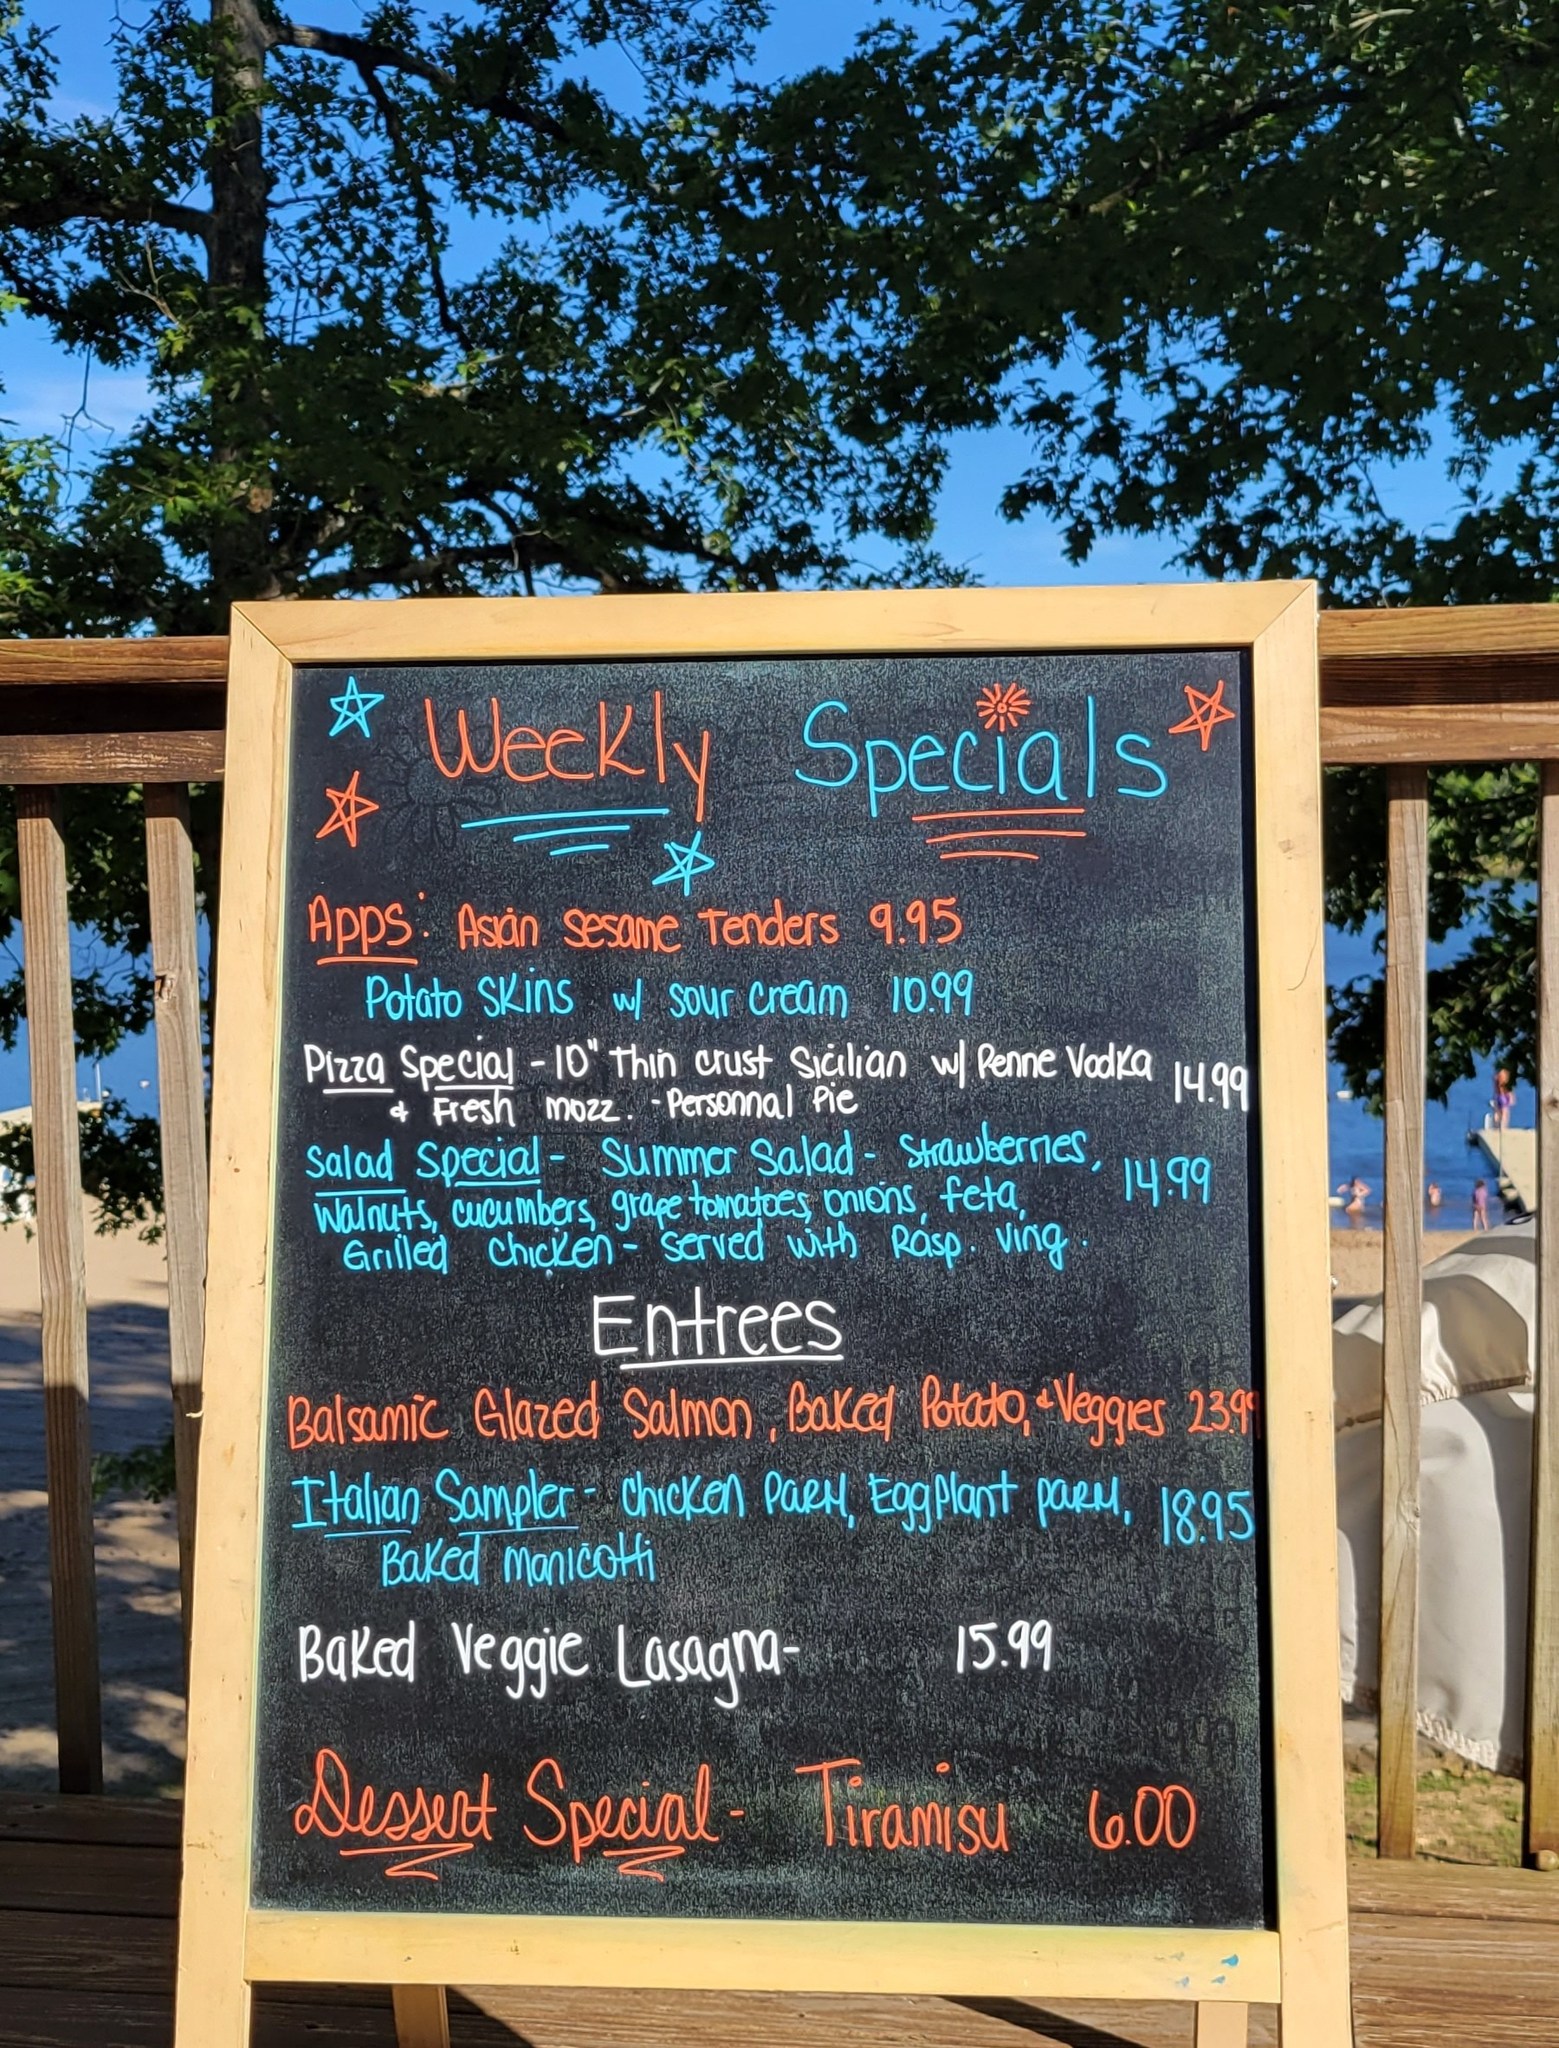 Weekly Specials
Apps: Asian Sesame Tenders 9.95
Potato Skins w/ sour cream 10.99
Pizza Special - 10" Thin crust Sicilian w/ Penne Vodka 14.99
& Fresh mozz. - Personnal Pie
Salad Special - Summer Salad - Strawberries, 14.99
Walnuts, cucumbers, grape tomatoes, onions, feta,
Grilled chicken - served with Rasp. ving.
Entrees
Balsamic Glazed Salmon, Baked Potato, & Veggies 23.99
Italian Sampler - Chicken Parm, Eggplant parm, 18.95
Baked manicotti
Baked Veggie Lasagna- 15.99
Dessert Special - Tiramisu 6.00